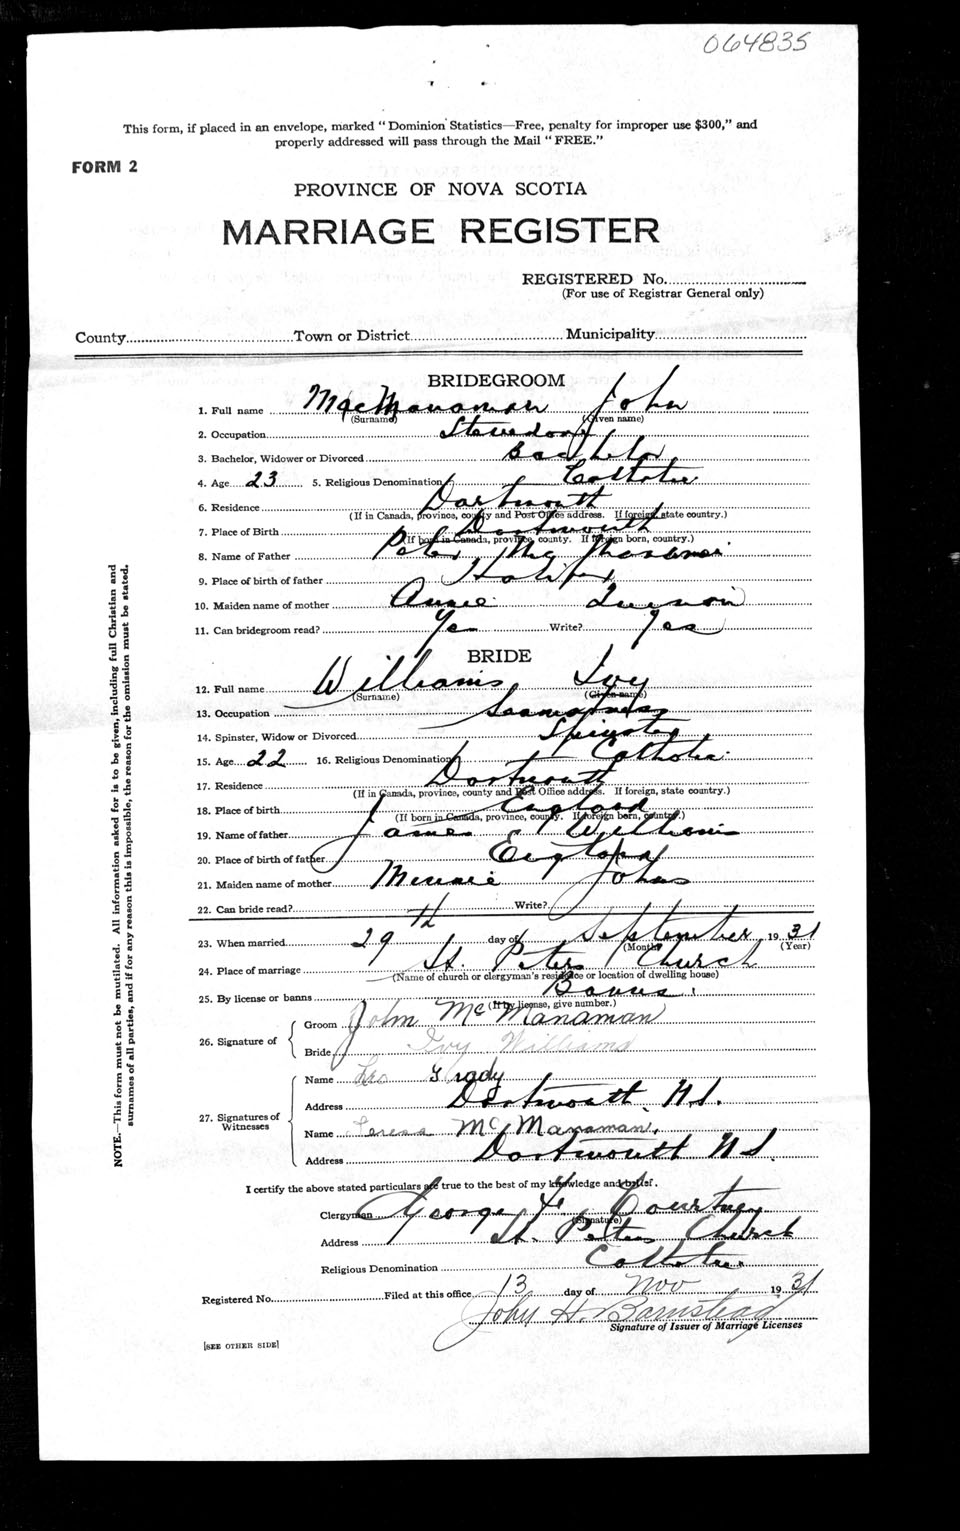 064835
This form, if placed in an envelope, marked "Dominion Statistics—Free, penalty for improper use $300," and
properly addressed will pass through the Mail "FREE."
FORM 2
PROVINCE OF NOVA SCOTIA
MARRIAGE REGISTER
REGISTERED No.
(For use of Registrar General only)
County Town or District Municipality
BRIDEGROOM
1. Full name MacManaman John
(Surname) (Given name)
2. Occupation Stevedore
3. Bachelor, Widower or Divorced Bachelor
4. Age 23 5. Religious Denomination Catholic
6. Residence Dartmouth
(If in Canada, province, county and Post Office address. If foreign, state country.)
7. Place of Birth Dartmouth
(If born in Canada, province, county. If foreign born, country.)
8. Name of Father Peter MacManaman
9. Place of birth of father Halifax
10. Maiden name of mother Annie
11. Can bridegroom read? Yes Write? Yes
BRIDE
12. Full name Williams Ivy
(Surname) (Given name)
13. Occupation
14. Spinster, Widow or Divorced Spinster
15. Age 22 16. Religious Denomination Catholic
17. Residence Dartmouth
(If in Canada, province, county and Post Office address. If foreign, state country.)
18. Place of birth England
(If born in Canada, province, county. If foreign born, country.)
19. Name of father James Williams
20. Place of birth of father England
21. Maiden name of mother Minnie Johns
22. Can bride read? Write?
23. When married 29th day of September 1931
(Month) (Year)
24. Place of marriage St. Peters Church
(Name of church or clergyman's residence or location of dwelling house)
25. By license or banns Banns.
(If by license, give number.)
26. Signature of
Groom John McManaman
Bride Ivy Williams
27. Signatures of Witnesses
Name Leo Grady
Address Dartmouth, N.S.
Name Teresa McManaman.
Address Dartmouth N S.
I certify the above stated particulars are true to the best of my knowledge and belief.
Clergyman George F. Courtney
(Signature)
Address St. Peters Church
Religious Denomination Catholic
Registered No. Filed at this office 13 day of Nov 1931
John H. Barnstead
Signature of Issuer of Marriage Licenses
[SEE OTHER SIDE]
NOTE.—This form must not be mutilated. All information asked for is to be given, including full Christian and
surnames of all parties, and if for any reason this is impossible, the reason for the omission must be stated.